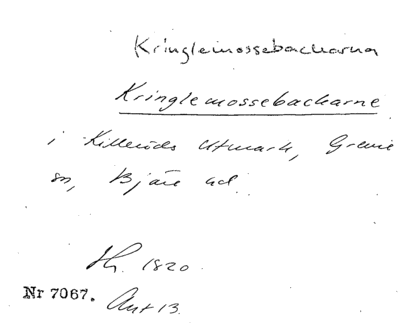 Kringlemossebackarna
Kringlemossebackarne
i Killeröds Utmark, Grevie
sn, Bjäre hd.
Sk. 1820.
Nr 7067. Akt 13.